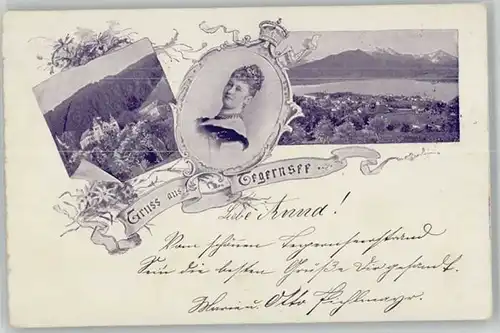 Gruss aus Tegernsee
Liebe Anna!
Vom schönen Tegernseerstrand
Sein die besten Grüße Dir gesandt.
Marie u. Otto Pichlmayr.